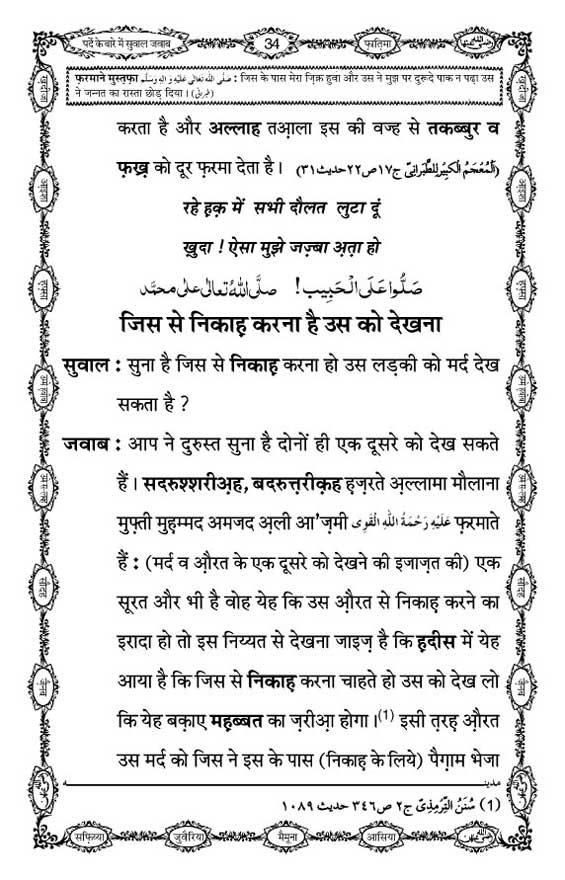 पर्दे के बारे में सुवाल जवाब
34
फ़ातिमा
फ़रमाने मुस्तफ़ा صلى الله تعالى عليه واله وسلم : जिस के पास मेरा ज़िक्र हुवा और उस ने मुझ पर दुरूदे पाक न पढ़ा उस
ने जन्नत का रास्ता छोड़ दिया। (طبرانی)
करता है और अल्लाह तआ़ला इस की वज्ह से तकब्बुर व
फ़ख़्र को दूर फ़रमा देता है। (اَلْمُعْجَمُ الْكَبِيْر لِلطَّبَرَانِیّ ج۱۷ص۲۲حدیث۳۱)
रहे ह़क़ में सभी दौलत लुटा दूं
ख़ुदा ! ऐसा मुझे जज़्बा अ़त़ा हो
صَلُّوا عَلَى الْحَبِيب! صلَّى اللهُ تعالٰى علٰى محمَّد
जिस से निकाह़ करना है उस को देखना
सुवाल : सुना है जिस से निकाह़ करना हो उस लड़की को मर्द देख
सकता है ?
जवाब : आप ने दुरुस्त सुना है दोनों ही एक दूसरे को देख सकते
हैं। सदरुश्शरीअ़ह, बदरुत़्त़रीक़ह ह़ज़रते अ़ल्लामा मौलाना
मुफ़्ती मुह़म्मद अमजद अ़ली आ'ज़मी عَلَيْهِ رَحْمَةُ اللهِ الْقَوِى फ़रमाते
हैं : (मर्द व औ़रत के एक दूसरे को देखने की इजाज़त की) एक
सूरत और भी है वोह येह कि उस औ़रत से निकाह़ करने का
इरादा हो तो इस निय्यत से देखना जाइज़ है कि ह़दीस में येह
आया है कि जिस से निकाह़ करना चाहते हो उस को देख लो
कि येह बक़ाए मह़ब्बत का ज़रीआ़ होगा।(1) इसी त़रह़ औ़रत
उस मर्द को जिस ने इस के पास (निकाह़ के लिये) पैग़ाम भेजा
مدینہ
(1) سُنَنُ التِّرمِذِیّ ج۲ ص۳٤٦ حدیث ۱۰۸۹
सफ़िय्या
जुवैरिया
मैमूना
आसिया